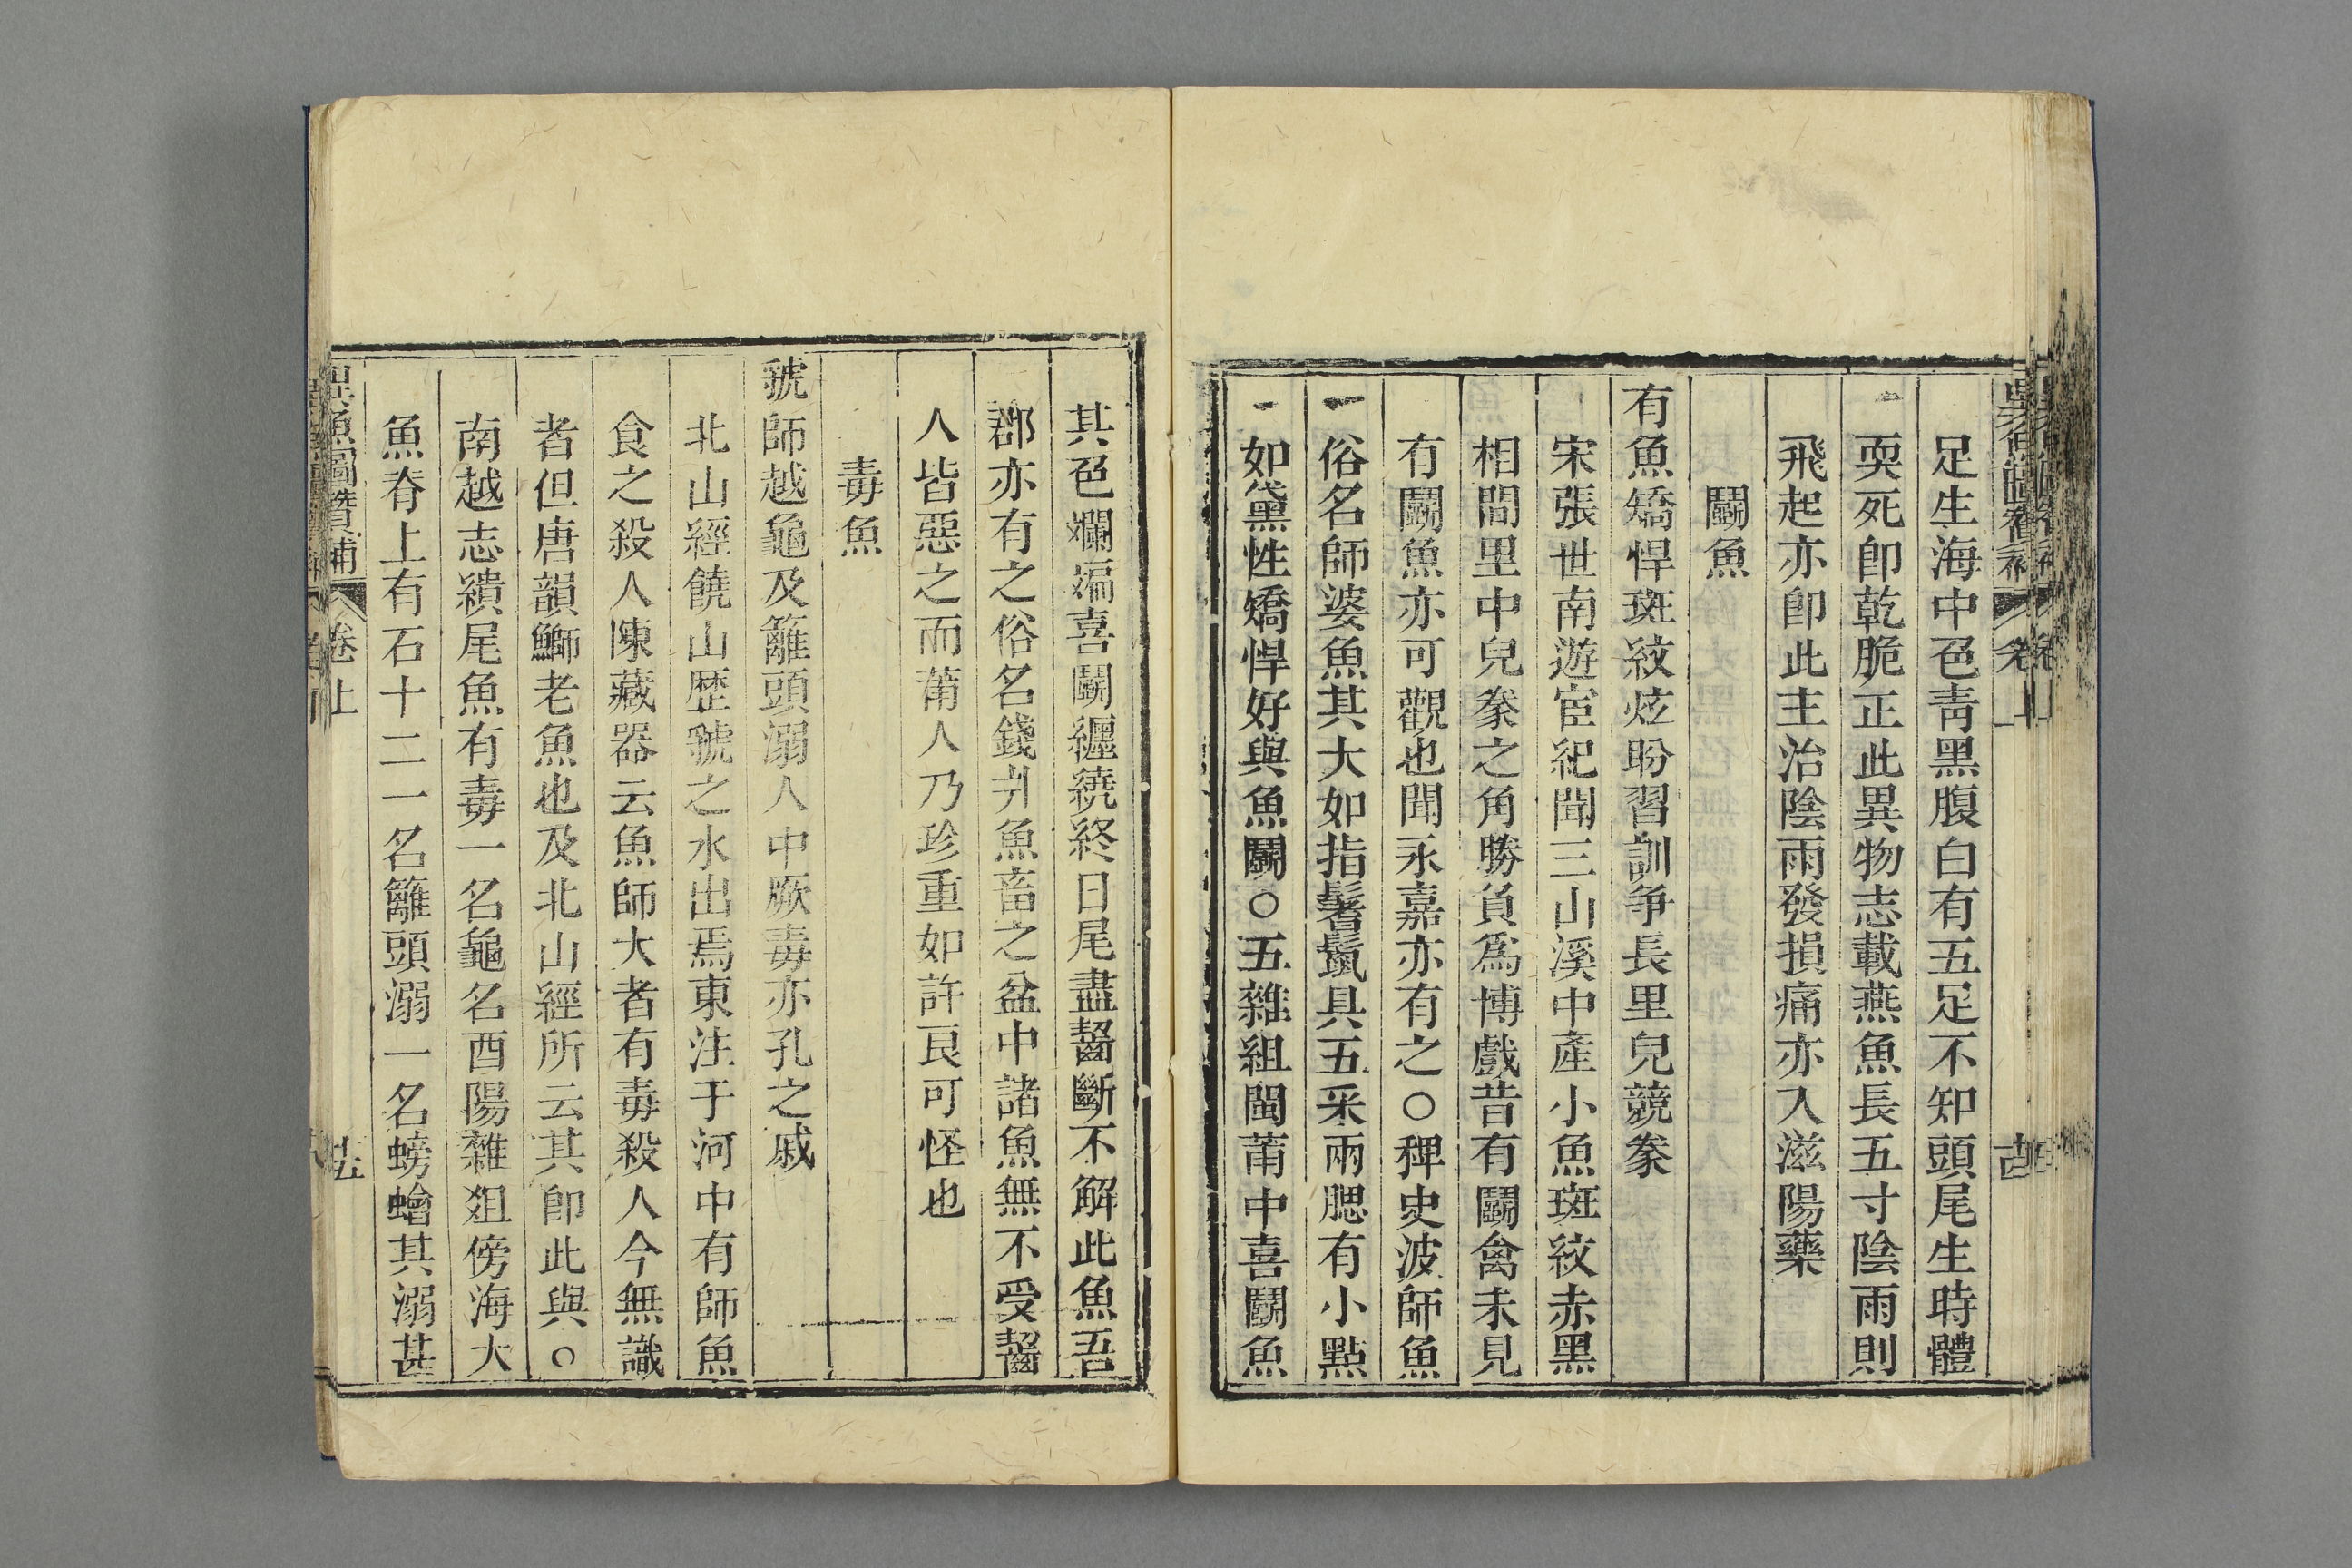 足生海中色靑黑腹白有五足不知頭尾生時體
耎死卽乾脆正此異物志載燕魚長五寸陰雨則
飛起亦卽此主治陰雨發損痛亦入滋陽藥
鬭魚
有魚矯悍斑紋炫盼習訓爭長里兒競豢
宋張世南遊宦紀聞三山溪中產小魚斑紋赤黑
相間里中兒豢之角勝負爲博戲昔有鬭禽未見
有鬭魚亦可觀也聞永嘉亦有之○稗史波師魚
一俗名師婆魚其大如指鬐鬣具五采兩腮有小點
如黛黑性矯悍好與魚鬭○五雜組閩莆中喜鬭魚
其色斕斒喜鬭纒繞終日尾盡齧斷不解此魚吾
郡亦有之俗名錢爿魚畜之盆中諸魚無不受齧
人皆惡之而莆人乃珍重如許良可怪也
毒魚
虢師越龜及籬頭溺人中厥毒亦孔之戚
北山經饒山歷虢之水出焉東注于河中有師魚
食之殺人陳藏器云魚師大者有毒殺人今無識
者但唐韻鰤老魚也及北山經所云其卽此與○
南越志繢尾魚有毒一名龜名酉陽雜俎傍海大
魚脊上有石十二一名籬頭溺一名螃蟾其溺甚
異魚圖贊補 卷上 十五